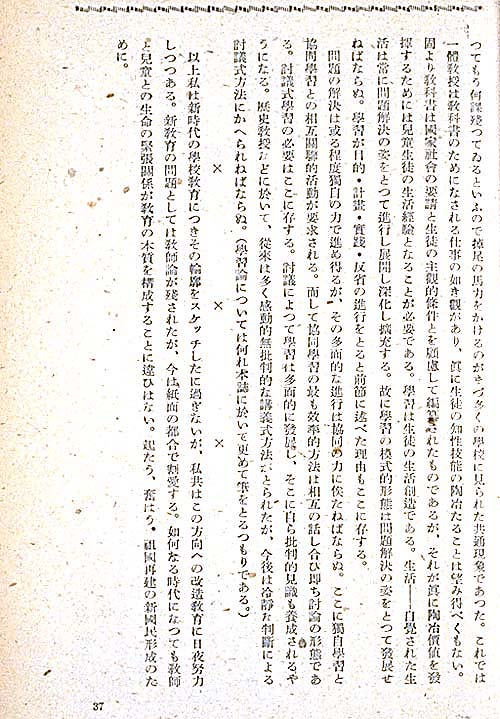 つてもう何課殘つてゐるといふので掉尾の馬力をかけるのがまづ多くの學校に見られた共通現象であつた。これでは
一體敎授は敎科書のためになされる仕事の如き觀があり、眞に生徒の知性技能の陶冶たることは望み得べくもない。
固より敎科書は國家社會の要請と生徒の主觀的條件とを顧慮して編纂されたものであるが、それが眞に陶冶價値を發
揮するためには兒童生徒の生活經驗となることが必要である。學習は生徒の生活創造である。生活――自覺された生
活は常に問題解決の姿をとつて進行し展開し深化し擴充する。故に學習の模式的形態は問題解決の姿をとつて發展せ
ねばならぬ。學習が目的・計畫・實踐・反省の進行をとると前節に述べた理由もここに存する。
問題の解決は或る程度獨自の力で進め得るが、その多面的な進行は協同の力に俟たねばならぬ。ここに獨自學習と
協同學習との相互關聯的活動が要求される。而して協同學習の最も效率的方法は相互の話し合ひ卽ち討論の形態であ
る。討議式學習の必要はここに存する。討議によつて學習は多面的に發展し、そこに自ら批判的見識も養成されるや
うになる。歷史敎授などに於いて、從來は多く感動的無批判的な講義式方法がとられたが、今後は冷靜な判斷による
討議式方法にかへられねばならぬ。(學習論については何れ本誌に於いて更めて筆をとるつもりである。)
× × ×
以上私は新時代の學校敎育につきその輪廓をスケッチしたに過ぎないが、私共はこの方向への改造敎育に日夜努力
しつつある。新敎育の問題としては敎師論が殘されたが、今は紙面の都合で割愛する。如何なる時代になつても敎師
と兒童との生命の緊張關係が敎育の本質を構成することに違ひはない。起たう、奮はう・祖國再建の新國民形成のた
めに。
37